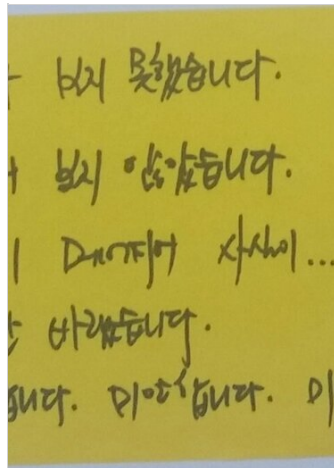 보지 못했습니다.
보지 않았습니다.
사실이...
바랬습니다.
습니다. 미안합니다. 미